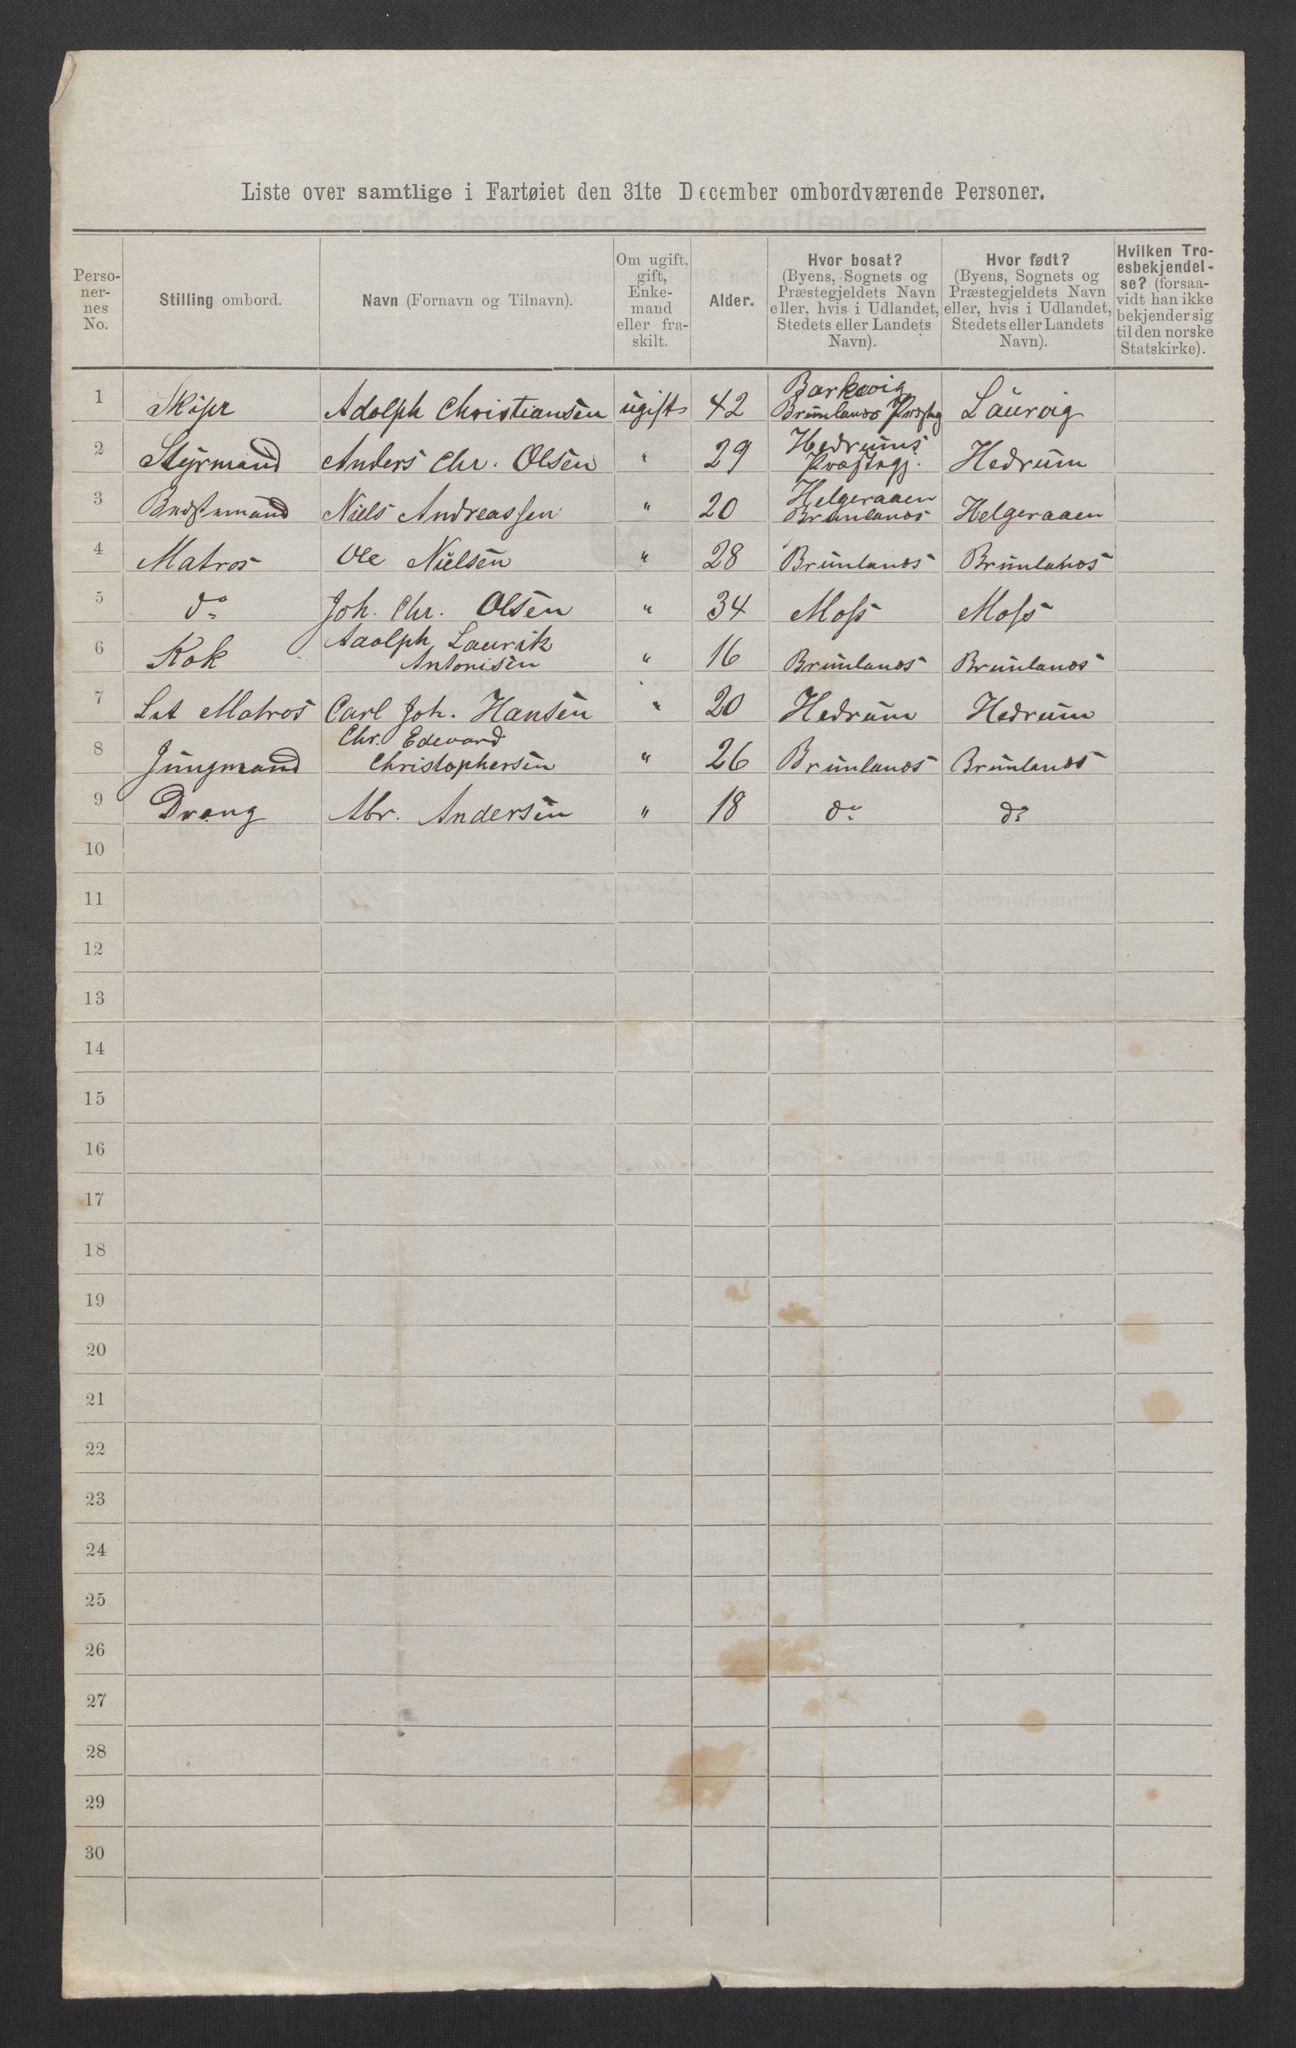 Liste over samtlige i Fartøiet den 31te December ombordværende Personer.
Perso-
ner-
nes
No.
Stilling ombord.
Navn (Fornavn og Tilnavn).
Om ugift,
gift,
Enke-
mand
eller fra-
skilt.
Alder.
Hvor bosat?
(Byens, Sognets og
Præstegjeldets Navn
eller, hvis i Udlandet,
Stedets eller Landets
Navn).
Hvor født?
(Byens, Sognets og
Præstegjeldets Navn
eller, hvis i Udlandet,
Stedets eller Landets
Navn).
Hvilken Tro-
esbekjendel-
se? (forsaa-
vidt han ikke
bekjender sig
til den norske
Statskirke).
Barkevig
1 Skipr Adolph Christiansen ugift 42 Brunlanos Præstg Laurvig
Hedrums
2 Styrmand Anders Chr. Olsen " 29 Præstegj. Hedrum
Helgeraaen
3 Bndstmand Niels Andreassen " 20 Brunlanos Helgeraaen
4 Matros Ole Nielsen " 28 Brunlanos Brunlanos
5 do Joh. Chr. Olsen " 34 Moss Moss
Adolph Laurik
6 Kok Antonisen " 16 Brunlanos Brunlanos
7 Let Matros Carl Joh. Hansen " 20 Hedrum Hedrum
Chr. Edevard
8 Jungmand Christophersen " 26 Brunlanos Brunlanos
9 Dreng Abr. Andersen " 18 do do
10
11
12
13
14
15
16
17
18
19
20
21
22
23
24
25
26
27
28
29
30